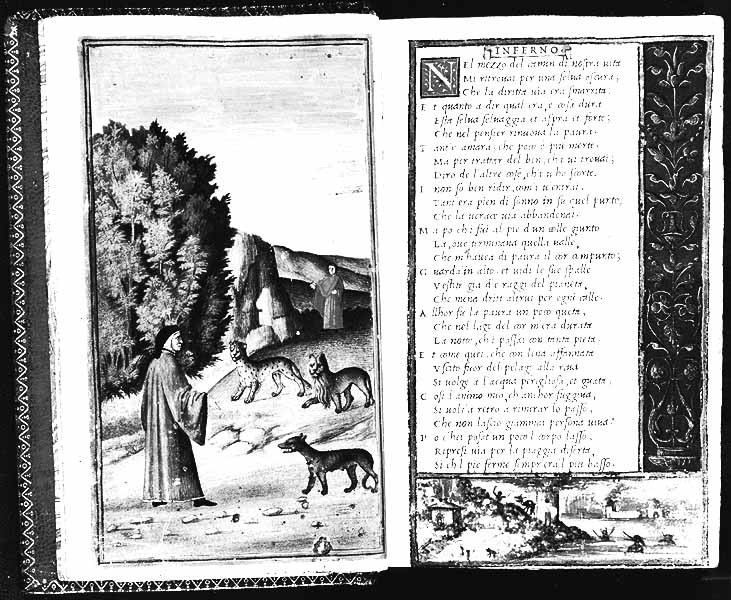 INFERNO
NEl mezzo del camin di nostra uita
Mi ritrouai per una selua oscura;
Che la diritta uia era smarrita;
Et quanto a dir qual era, e cosa dura
Esta selua seluaggia et aspra et forte;
Che nel pensier rinoua la paura.
Tant e amara; che poco e piu morte.
Ma per trattar del ben, ch i ui trouai;
Diro de l altre cose, ch i u ho scorte.
I non so ben ridir, com i u entrai,
Tant era pien di sonno in su quel punto,
Che la uerace uia abbandonai.
Ma po ch i fui al pie d un colle giunto
La, oue terminaua quella ualle,
Che m hauea di paura il cor compunto;
Guarda in alto, et uidi le sue spalle
Vestite gia de raggi del pianeta,
Che mena dritt altrui per ogni calle.
Allhor fu la paura un poco queta,
Che nel lago del cor m era durata
La notte, ch i passai con tanta pieta.
Et come quei, che con lena affannata
Vscito fuor del pelago alla riua
Si uolge a l acqua perigliosa, et guata;
Cosi l animo mio, ch anchor fuggiua,
Si uols a retro a rimirar lo passo,
Che non lascio giammai persona uiua.
Po c hei posat un poco l corpo lasso,
Ripresi uia per la piaggia diserta,
Si ch l pie fermo sempr era l piu basso.